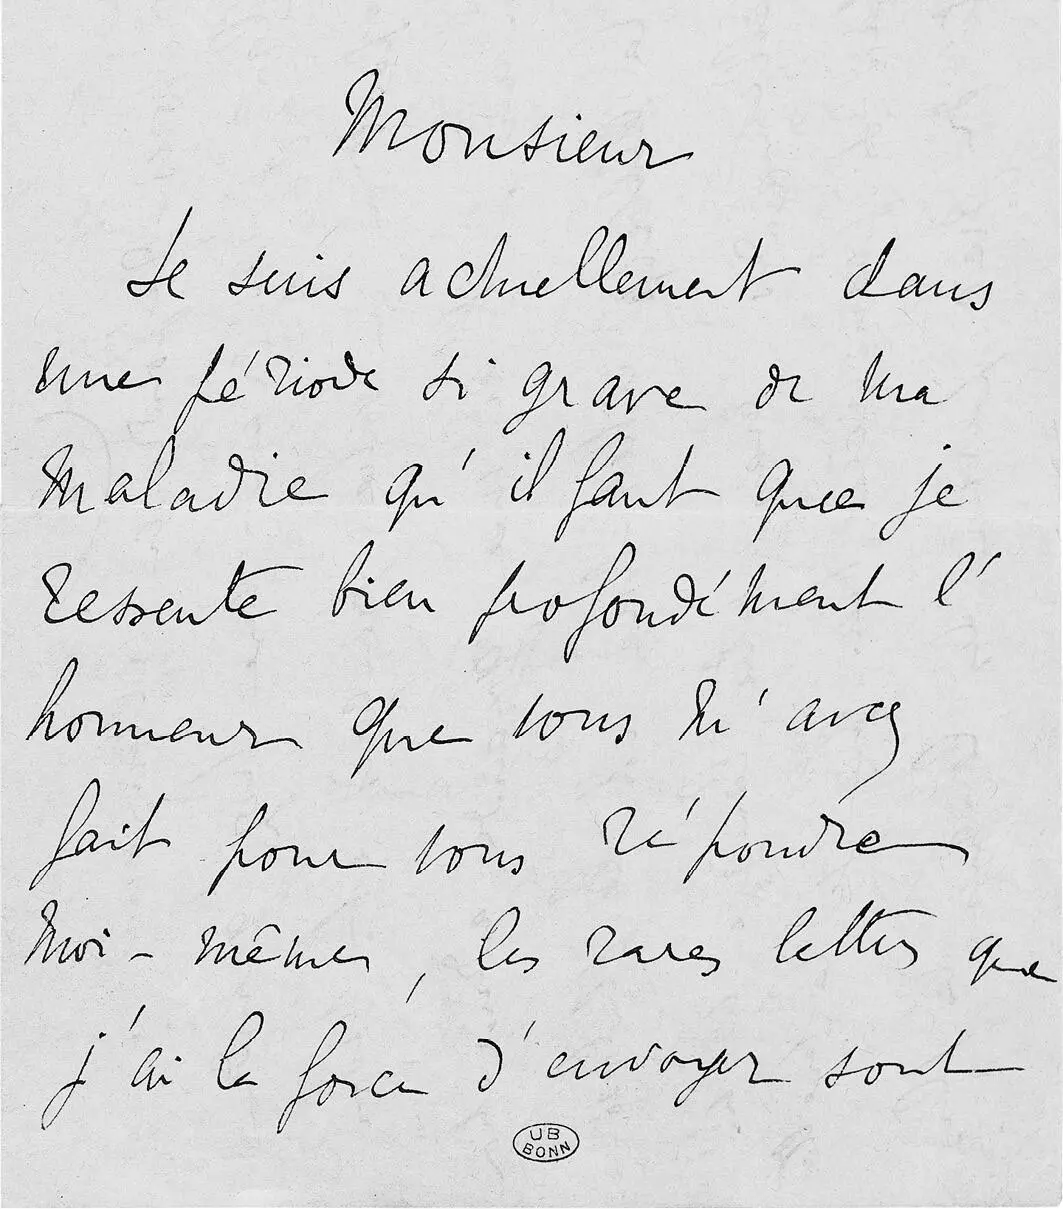 Monsieur
Je suis actuellement dans
une période si grave de ma
maladie qu'il faut que je
ressente bien profondément l'
honneur que vous m'avez
fait pour vous répondre
moi-même, les rares lettres que
j'ai la force d'envoyer sont
UB
BONN